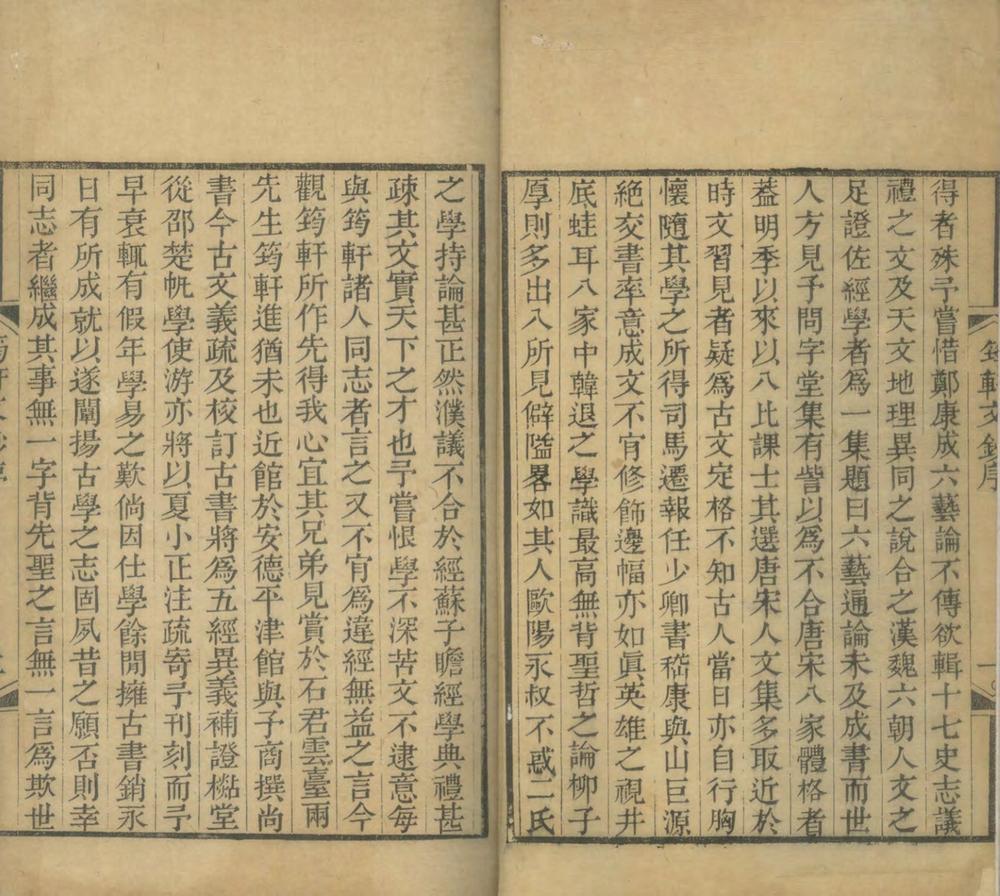 筠軒文鈔序
得者殊予嘗惜鄭康成六藝論不傳欲輯十七史志議
禮之文及天文地理異同之說合之漢魏六朝人文之
足證佐經學者爲一集題曰六藝通論未及成書而世
人方見予問字堂集有訾以爲不合唐宋八家體格者
葢明季以來以八比課士其選唐宋人文集多取近於
時文習見者疑爲古文定格不知古人當日亦自行胸
懷隨其學之所得司馬遷報任少卿書嵇康與山巨源
絕交書率意成文不肎修飾邊幅亦如眞英雄之視井
底蛙耳八家中韓退之學識最高無背聖哲之論柳子
厚則多出入所見僻隘畧如其人歐陽永叔不惑二氏
之學持論甚正然濮議不合於經蘇子瞻經學典禮甚
疎其文實天下之才也予嘗恨學不深苦文不逮意每
與筠軒諸人同志者言之又不肎爲違經無益之言今
觀筠軒所作先得我心宜其兄弟見賞於石君雲臺兩
先生筠軒進猶未也近館於安德平津館與予商撰尚
書今古文義疏及校訂古書將爲五經異義補證檆堂
從邵楚帆學使游亦將以夏小正注疏寄予刊刻而予
早衰輒有假年學易之歎倘因仕學餘閒擁古書銷永
日有所成就以遂闡揚古學之志固夙昔之願否則幸
同志者繼成其事無一字背先聖之言無一言爲欺世